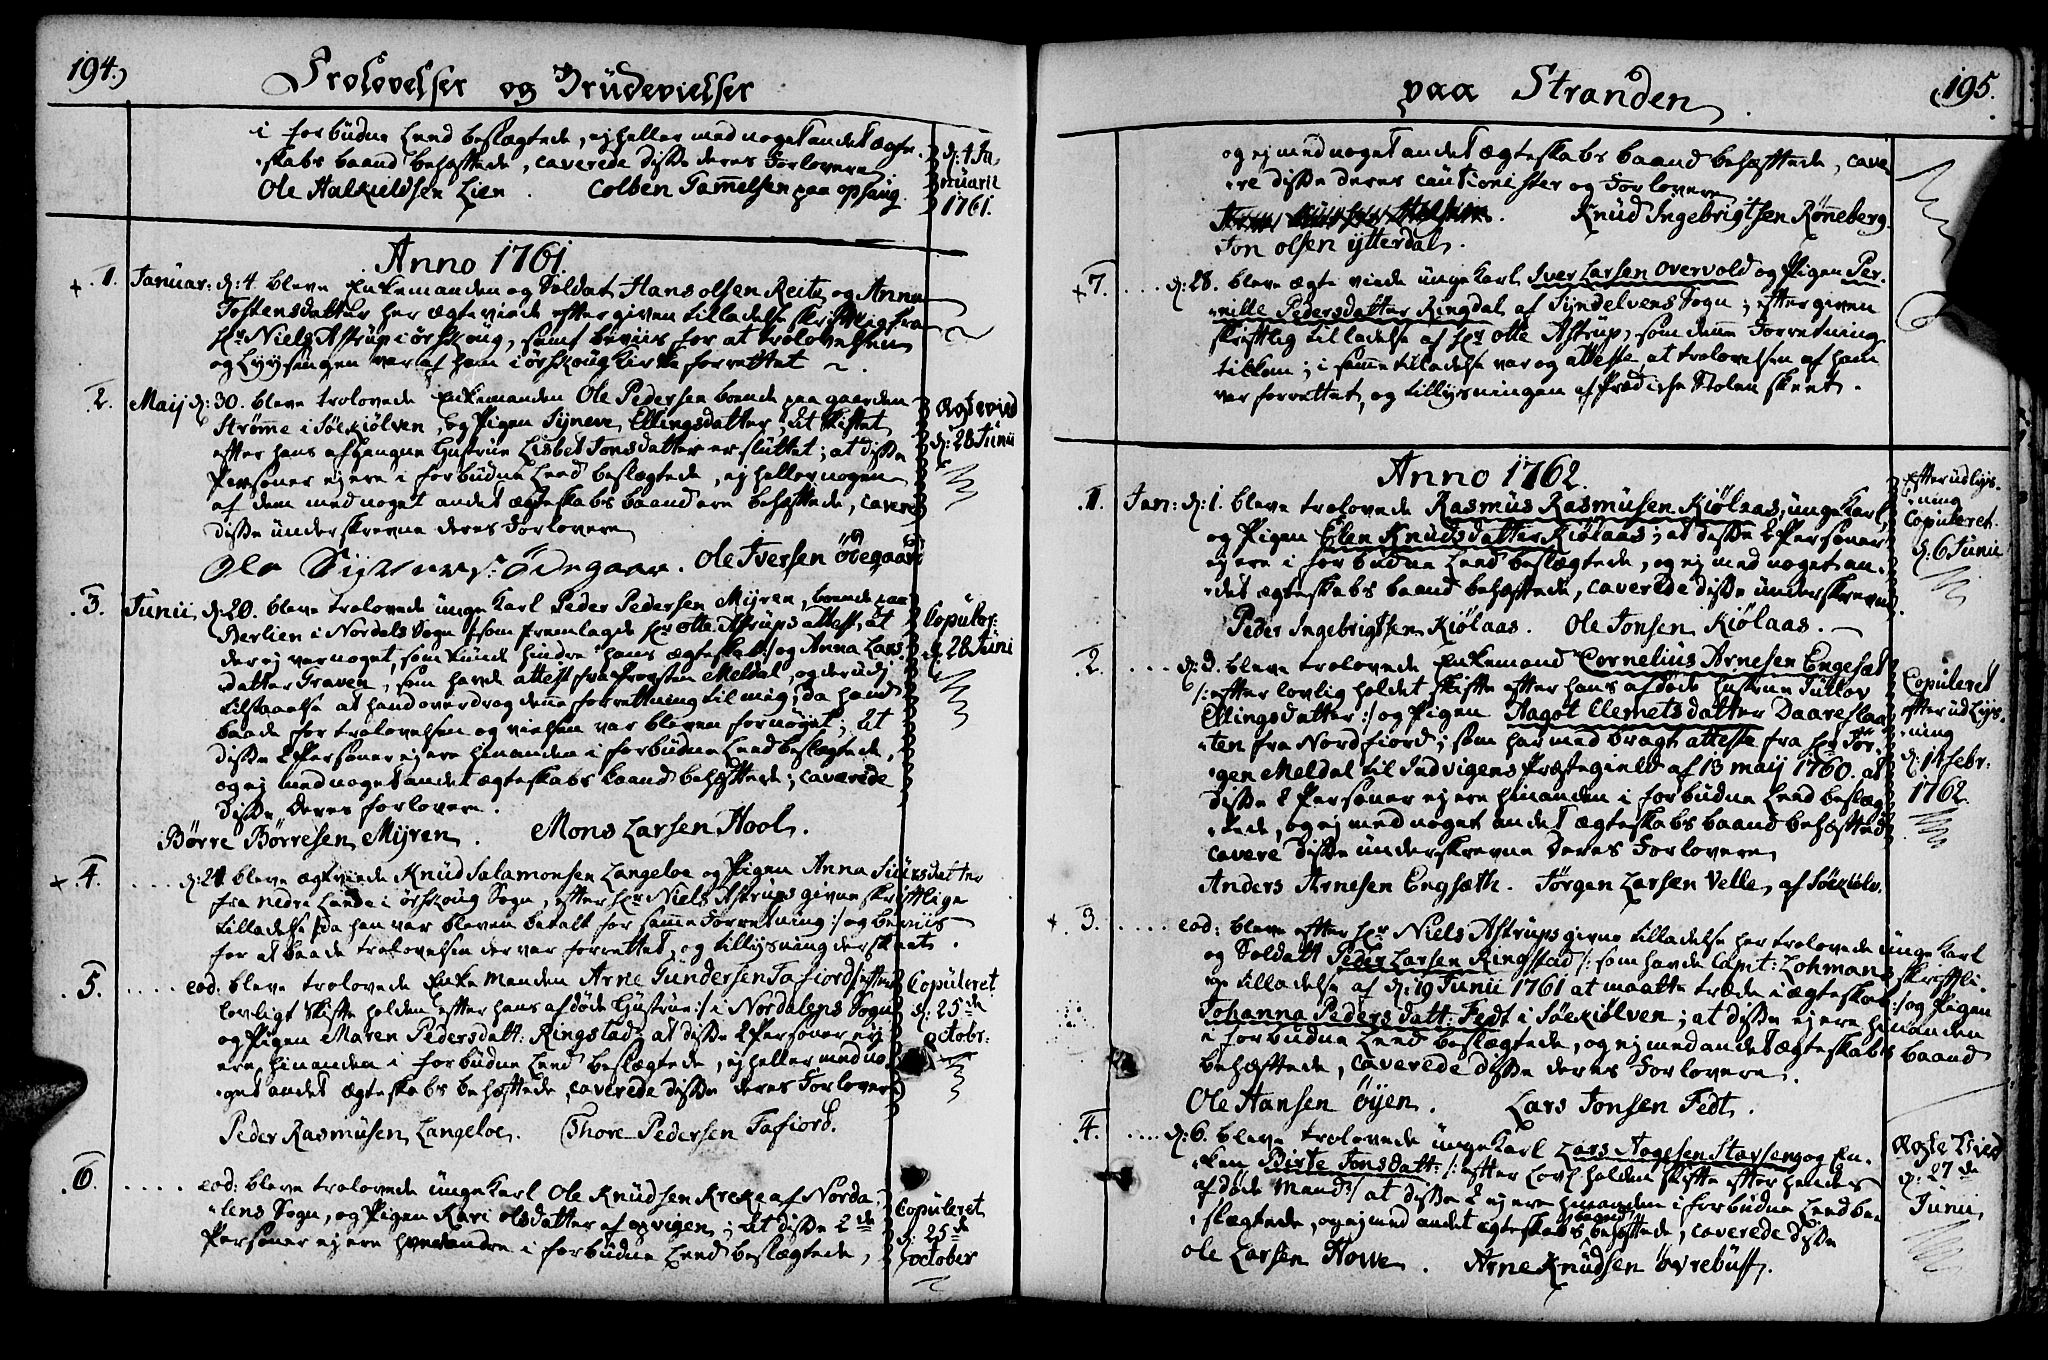 194.
Trolovelser og Brüdevielser
i forbudne Leed beslægtede, ej heller med noget andet ægte-
skabs baand behæftede, caverede disse deres Forlovere
Ole Halkieldsen Lien. Colben Tammelsen paa opsaug.
d: 4 Ja-
nuarii
1761.
Anno 1761
+ 1. Januar: d: 4. bleve Enkemanden og Soldat Hans olsen Reite og Anna
Tostensdatter her ægteviede efter given tilladelse skriftlig fra
Hr Niels Astrup i ørskoug, samt beviis for at trolovelsen
og Lyysningen var af ham i ørskoug Kirke forrettet
2. Maij d: 30. bleve trolovede Enkemanden Ole Pedersen boende paa gaarden
Strømme i Søekiølven, og Pigen Synneve Ellingsdatter; at skiftet
efter hans afgangne Hustrue Lisbet Jonsdatter er sluttet; at disse
Personer ej ere i forbudne Leed beslægtede, ej heller nogen
af dem med noget andet ægteskabs baand ere behæftede, cavere
disse underskrevne deres Forlovere
Ole ødegaar. Ole Iversen Ödegaard
Ægtevied
d: 28 Junii
3. Junii d: 20. bleve trolovede unge Karl Peder Pedersen Myren, boende paa
Berlien i Nordals Sogn /: som fremlagde Hr otte Astrups attest, at
der ej var noget, som kunde hindre hans ægteskab :/ og Anna Lars-
datter Graven, som havde attest fra Provsten Meldal, og derudj
tilstaaelse at hand overdrog denne forretning til mig, da hand
baade for trolovelsen og vielsen var bleven fornøyet; At
disse 2 Personer ej ere hinanden i forbudne Leed beslægtede,
og ej med noget andet ægteskabs baand behæftede; caverede
disse deres forlovere.
Börre Börresen Myren. Mons Larsen Hool.
Copuler:
d. 28 Juni
+ 4. .... d: 24 bleve ægteviede Knud Salamonsen Langeloe og Pigen Anna Siursdatter
fra nedre Lende i ørskoug Sogn, efter Hr Niels Astrups givne skriftlige
tilladelse /: da han var bleven betalt for samme Forretning :/ og beviis
for at baade trolovelsen der var forrettet, og tillysning der skeet.
5. .... eod: bleve trolovede Enkemanden Arne Gundersen Tafiord /: efter
lovligt skifte holden efter hans afdøde Hustrue :/ i Nordalens Sogn
og Pigen Maren Pedersdatt: Ringstad; at disse 2 Personer ej
ere hinanden i forbudne Leed beslægtede, ej heller med no-
get andet ægteskabs behæftede, caverede disse deres Forlovere
Peder Rasmüsen Langeloe. Thore Pedersen Tafiord.
Copuleret
d: 25de
octobr:
6. .... eod: bleve trolovede unge Karl Ole Knudsen Kreke af Norda-
lens Sogn, og Pigen Kari olsdatter af opvigen; At disse 2de
Personer ej ere hverandre i forbudne Leed beslægtede,
Copuleret
d. 25de
october
paa Stranden
195.
og ej med noget andet ægteskabs baand behæftede, cave-
re disse deres cautionister og Forlovere
Knud Ingebrigtsen Rönneberg.
Jon olsen ytterdal.
+ 7. .... d: 28. bleve ægteviede unge Karl Iver Larsen overvold og Pigen Per-
nille Pedersdatter Ringdal af Syndelvens Sogn; efter given
skriftlig tilladelse af Hr otte Astrup, som denne Forretning
tilkom; i samme tilladelse var og atteste, at trolovelsen af ham
var forrettet, og tillysningen af Prædiche Stolen skeet.
Anno 1762.
1. Jan: d: 1. bleve trolovede Rasmüs Rasmüsen Kiölaas, unge Karl,
og Pigen Elen Knudsdatter Kiölaas; at disse 2 Personer
ej ere i forbudne Leed beslægtede, og ej med noget an-
det ægteskabs baand behæftede, caverede disse underskrevne
Peder Ingebrigtsen Kiölaas. Ole Jonsen Kiölaas.
Efter udlys-
ning
Copuleret.
d: 6 Junii
2. .... d: 3. bleve trolovede Enkemand Cornelius Arnesen Engesæt
/: efter lovlig holdet skifte efter hans afdøde Hustrue Tullov
Ellingsdatter :/ og Pigen Aagot Clemetsdatter Daareslaa-
ten fra Nordfiord; som har med bragt atteste fra Hr Jør-
gen Meldal til Indvigens Præstegield af 13 maij 1760. at
disse 2 Personer ej ere hinanden i forbudne Leed beslæg-
tede, og ej med noget andet ægteskabs baand behæftede
cavere disse underskrevne deres Forlovere
Anders Arnesen Engsæth. Jørgen Larsen Velle, af Söekiölv.
Copuleret
efter udlys-
ning
d: 14 febr:
1762.
+ 3. .... eod: bleve efter Hr Niels Astrups givne tilladelse her trolovede unge Karl
og Soldatt Peder Larsen Ringstad /: som havde Capt: Lohmans skriftli-
ge tilladelse af d: 19 Junii 1761 at maatte træde i ægteskab :/ og Pigen
Johanna Pedersdatt: Fedt i Söekiölven; at disse ej ere hinanden
i forbudne Leed beslægtede, og ej med andet ægteskabs baand
behæftede, caverede disse deres Forlovere.
Ole Hansen Öyen. Lars Jonsen Fedt.
4. .... d: 6. bleve trolovede unge Karl Lars Aagesen Stavseng og En-
ken Birte Jonsdatt: /: efter Lovl: holden skifte efter hendes
afdøde Mand :/ at disse 2 ej ere hinanden i forbudne Leed be-
slægtede, og ej med andet ægteskabs baand behæftede, caverede disse
Ole Larsen Howe. Arne Knudsen øvrebust.
Ægte Vied
d: 27de
Junii